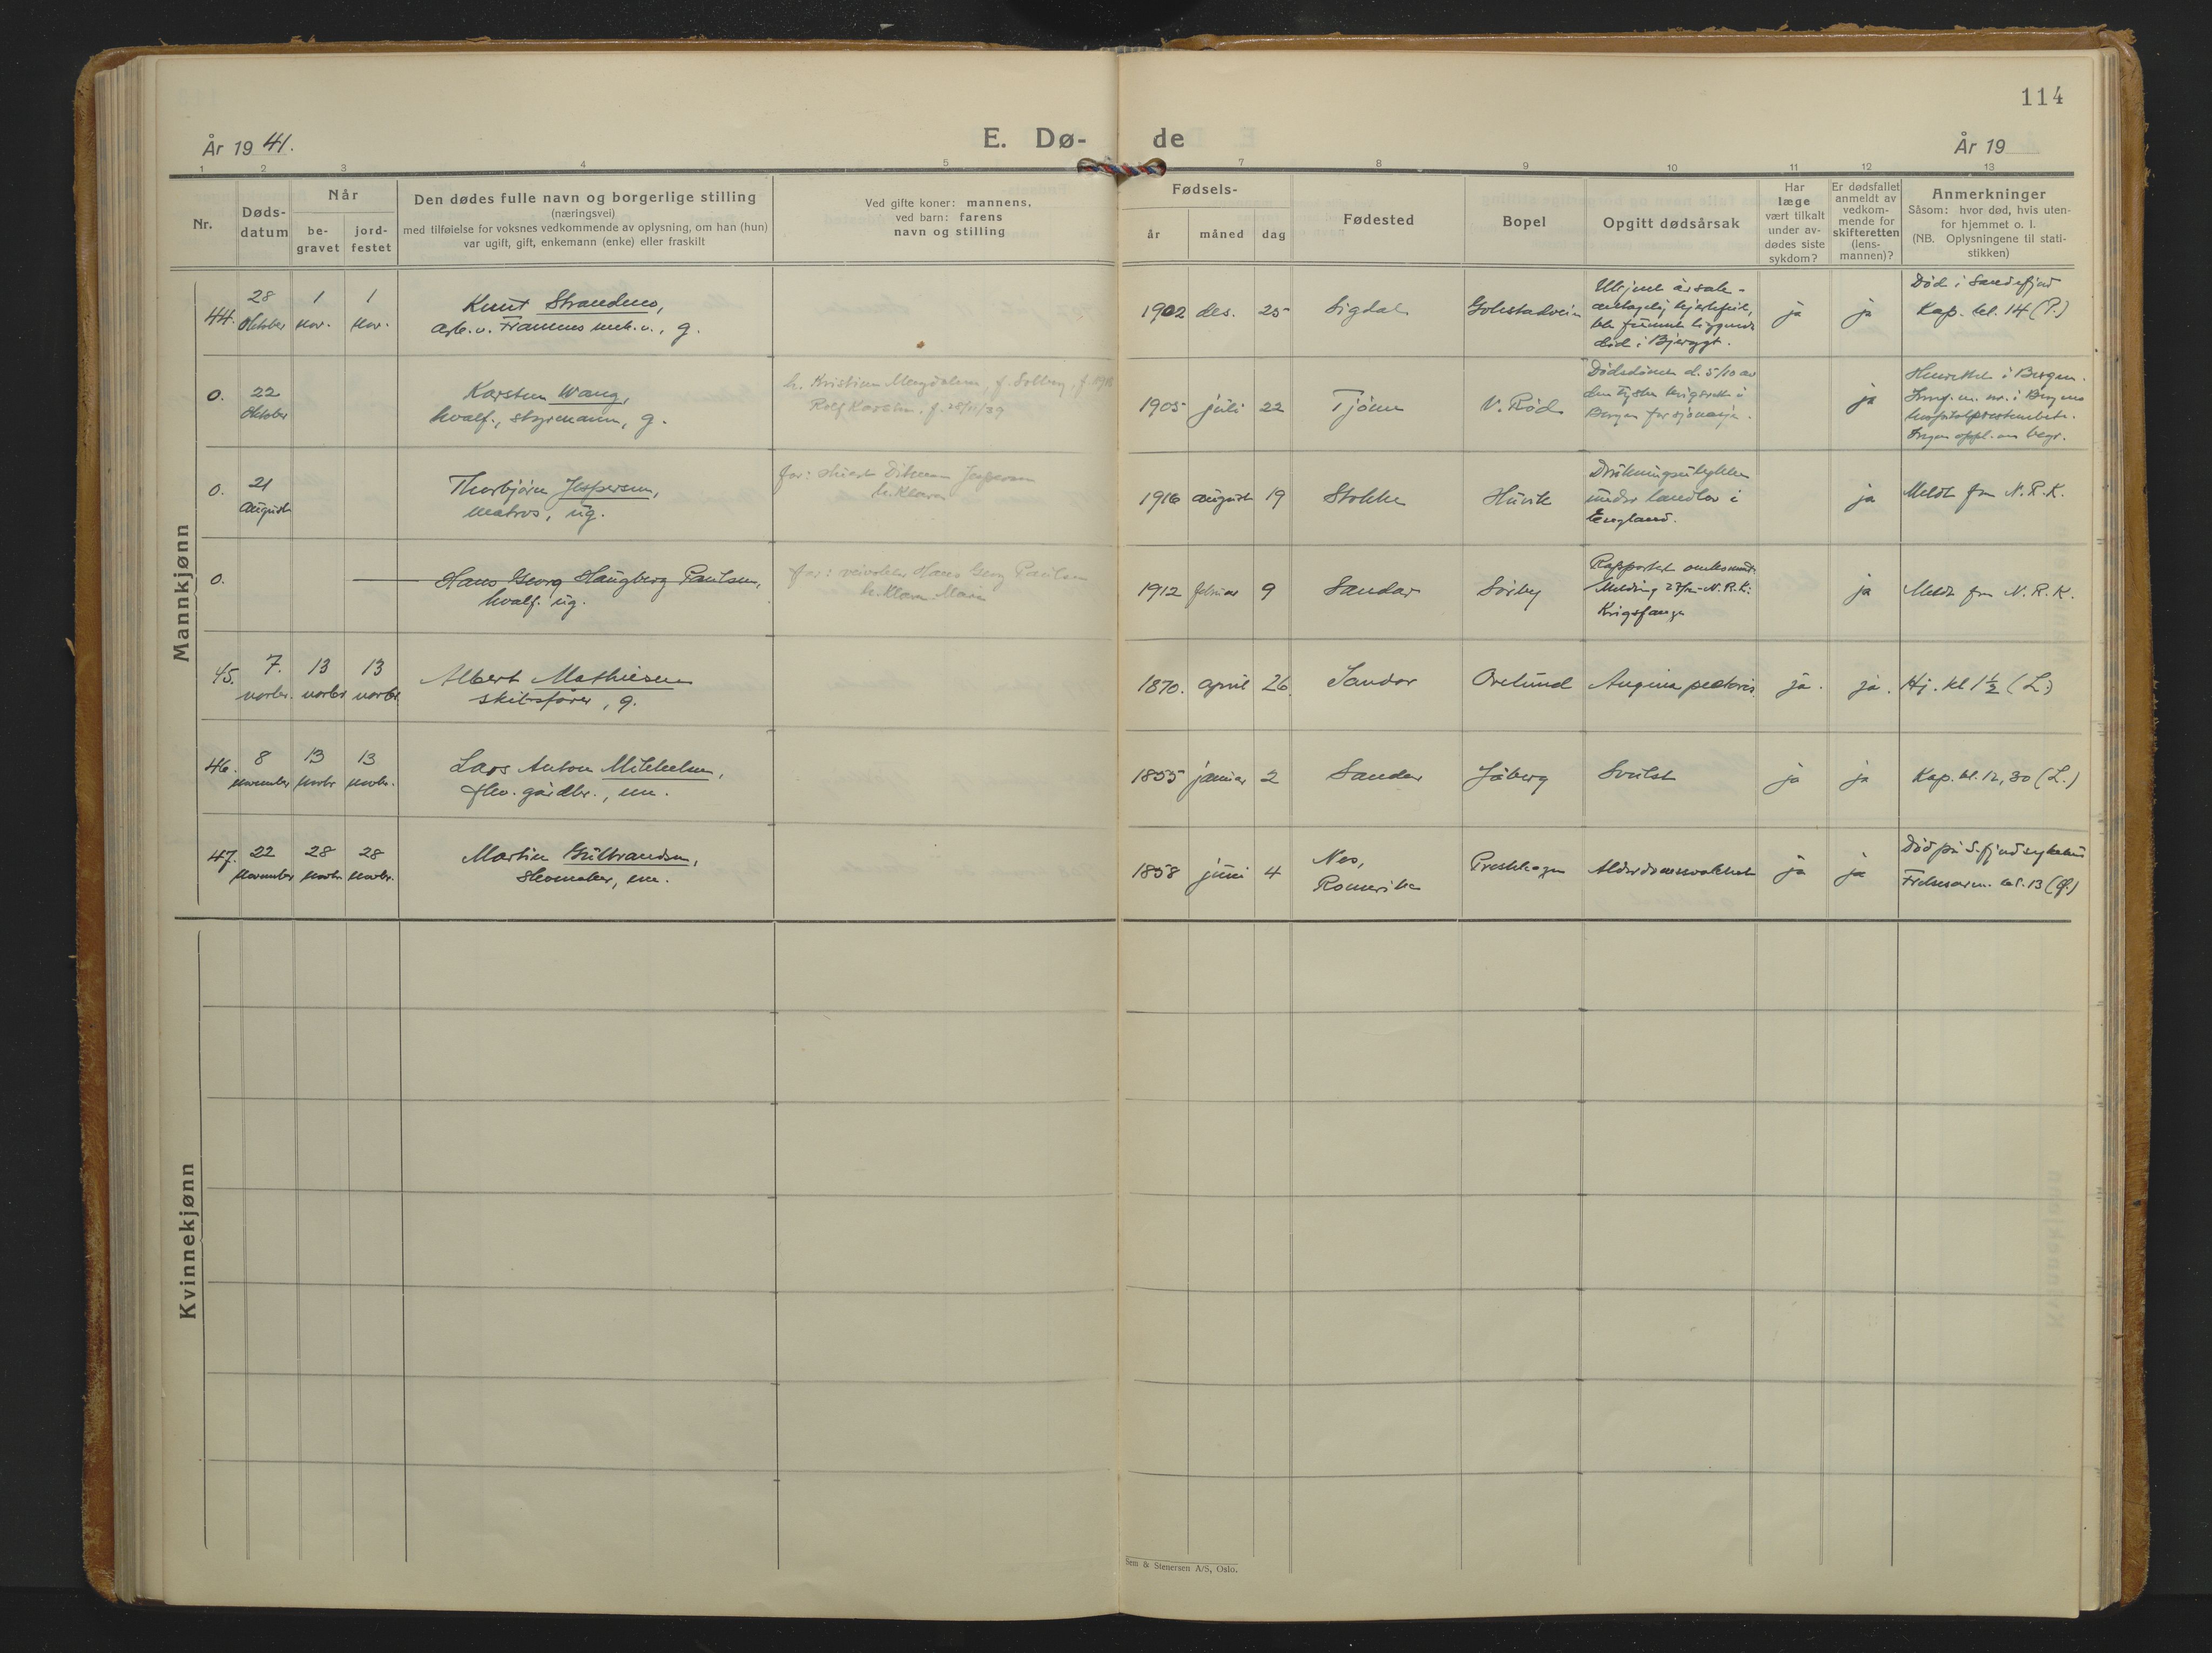 114
År 1941.
E. Dø-
de
År 19
1 2 3 4 5 7 8 9 10 11 12 13
Nr.
Døds-
datum
Når
be-
gravet
jord-
festet
Den dødes fulle navn og borgerlige stilling
(næringsvei)
med tilføielse for voksnes vedkommende av oplysning, om han (hun)
var ugift, gift, enkemann (enke) eller fraskilt
Ved gifte koner: mannens,
ved barn: farens
navn og stilling
Fødsels-
år
måned
dag
Fødested
Bopel
Opgitt dødsårsak
Har
læge
vært tilkalt
under av-
dødes siste
sykdom?
Er dødsfallet
anmeldt av
vedkom-
mende for
skifteretten
(lens-
mannen)?
Anmerkninger
Såsom: hvor død, hvis uten-
for hjemmet o. l.
(NB. Oplysningene til stati-
stikken)
Mannkjønn
44.
28
Oktober
1
Nov.
1
Nov.
Knut
Arb. v. Framnæs mek. v., g.
1902 des. 25
Sigdal
Ukjent årsak -
antagelig hjertefeil,
ble funnet liggende
død i
ja
ja
Død i Sandefjord
Kap. kl. 14 (P.)
0.
22
Oktober
Karsten Wang,
hvalf., styrmann, g.
h. Kristine Magdalene, f. Solberg,
Rolf Karsten, f. 28/11/39
1905 juli 22
Tjøme
V. Rød
Dødsdømt d. 5/10 av
den tyske krigsrett i
Bergen for
ja
Henrettet i Bergen.
Ingen oppl. om begr.
0.
21
August
Thorbjørn Jespersen,
matros, ug.
far: Jespersen
h. Klara
1916 august 19
Stokke
Huvik
Drukningsulykke
under landlov i
England.
ja
Meldt fra N.R.K.
0.
Hans Georg Haugberg Paulsen,
hvalf. ug.
far: Hans Georg Paulsen
h. Klara Marie
1912 februar 9
Sandar
Sørby
Rapportert omkommet.
Melding N.R.K.:
Krigsfange
ja
Meldt fra N.R.K.
45.
7.
novbr.
13
novbr
13
novbr.
Albert Mathiesen
skibsfører, g.
1870. april 26
Sandar
Orelund
Angina pectoris
ja.
ja.
Hj. kl 1½ (L.)
46.
8
November
13
Novbr
13
Novbr.
Lars Anton Mikkelsen,
fhv. gårdbr., em.
1855 januar 2
Sandar
Jåberg
Svulst
ja
ja
Kap. kl. 12,30 (L.)
47.
22
November
28
Novbr
28
Novbr.
Martin Gulbrandsen,
skomaker, em.
1858 juni 4
Nes,
Romerike
Presthagen
Alderdomssvakhet
ja
ja
Død på S.fjord sykehus
kl. 13 (Q.)
Kvinnekjønn
Sem & Stenersen A/S, Oslo.